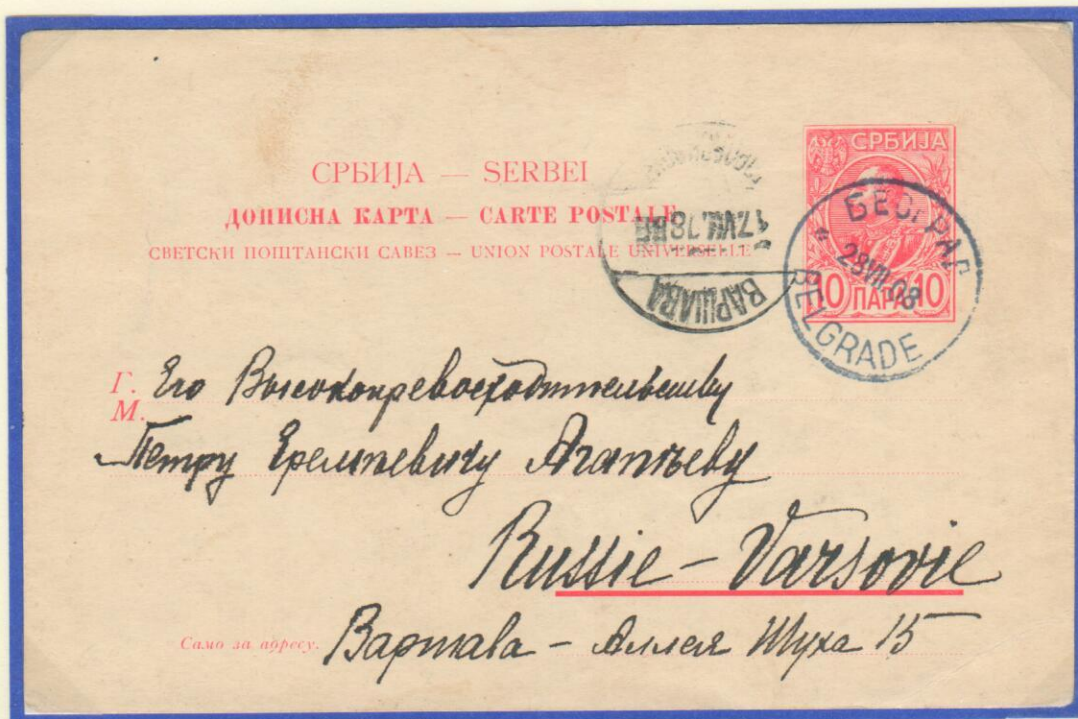 СРБИЈА — SERBEI
ДОПИСНА КАРТА — CARTE POSTALE
СВЕТСКИ ПОШТАНСКИ САВЕЗ — UNION POSTALE UNIVERSELLE
СРБИЈА
10 ПАРА 10
БЕОГРАД
28 VII 08
BELGRADE
17.VII.
ВАРШАВА
Г. Его Высокопревосходительству
М.
Петру Еремѣевичу Агапѣеву
Russie - Varsovie
Само за адресу.
Варшава - Аллея Шуха 15